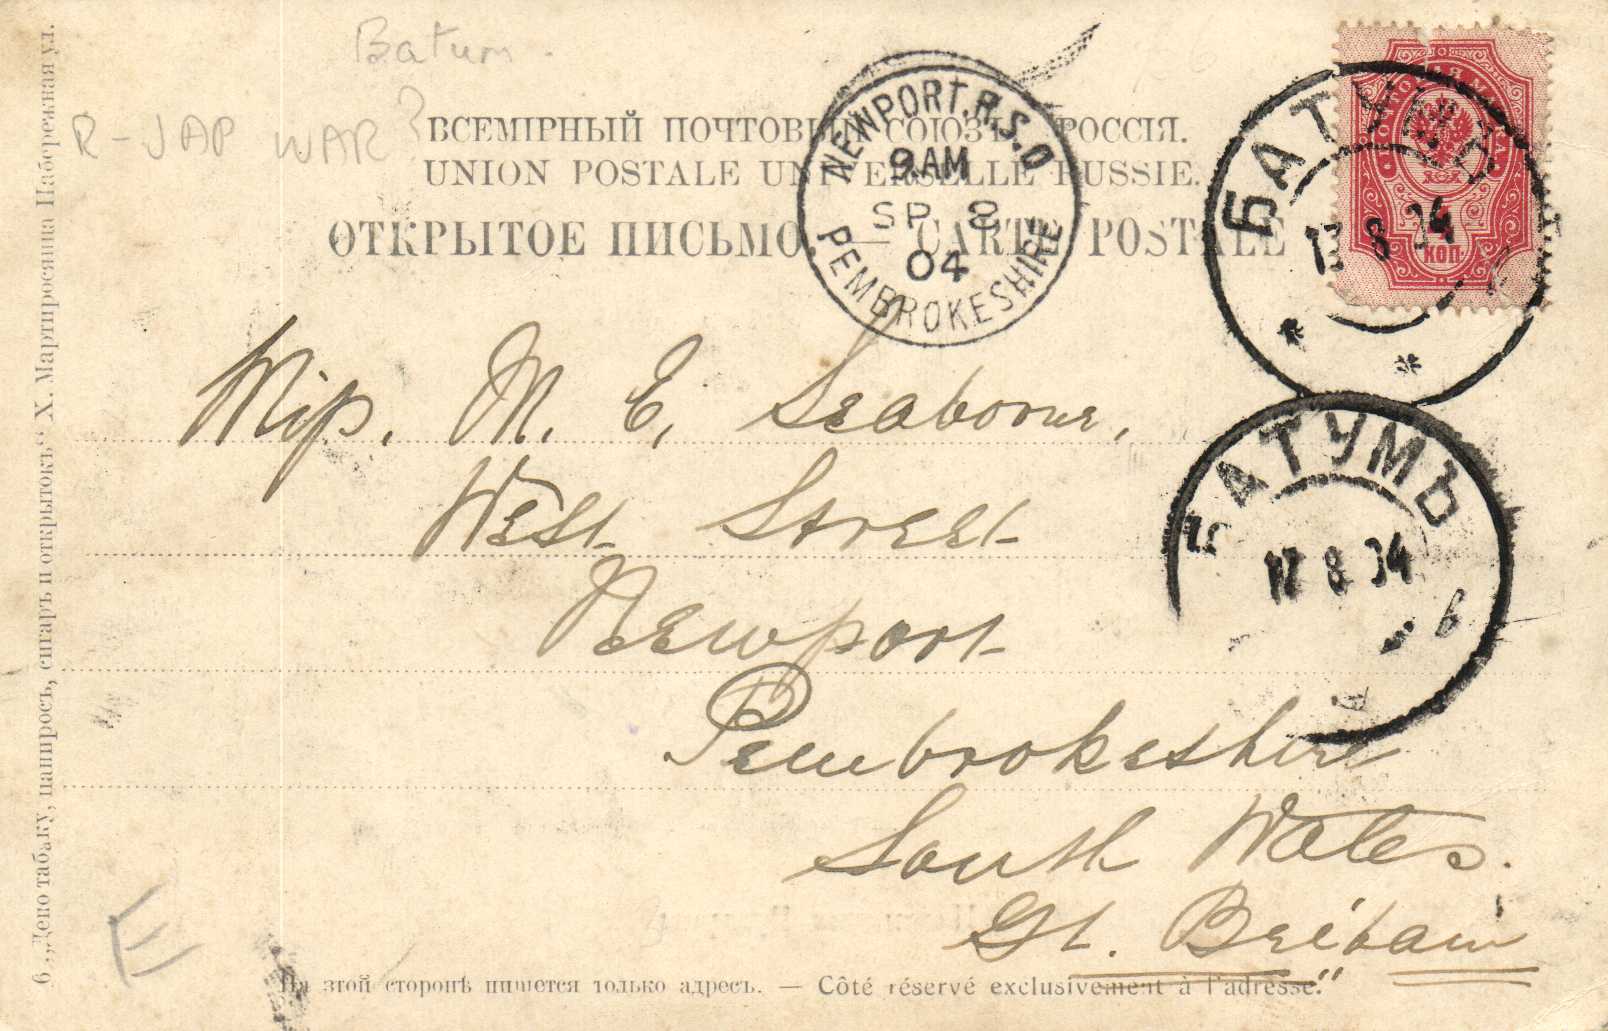 Batum.
R-JAP WAR?
ВСЕМІРНЫЙ ПОЧТОВЫЙ СОЮЗЪ. РОССІЯ.
UNION POSTALE UNIVERSELLE RUSSIE.
ОТКРЫТОЕ ПИСЬМО. — CARTE POSTALE
NEWPORT.R.S.O
9.AM
SP 8
04
PEMBROKESHIRE
ПОЧТОВАЯ МАРКА
4
КОП.
БАТУМЪ
13 8 04
БАТУМЪ
8 04
б
Miss. M. E. Seaborne,
West Street
Newport
Pembrokeshire
South Wales.
Gt. Britain
E
На этой сторонѣ пишется только адресъ. — Côté réservé exclusivement à l'adresse.
6 „Депо табаку, папиросъ, сигаръ и открытокъ“ Х. Мартиросянца Набережная ул.